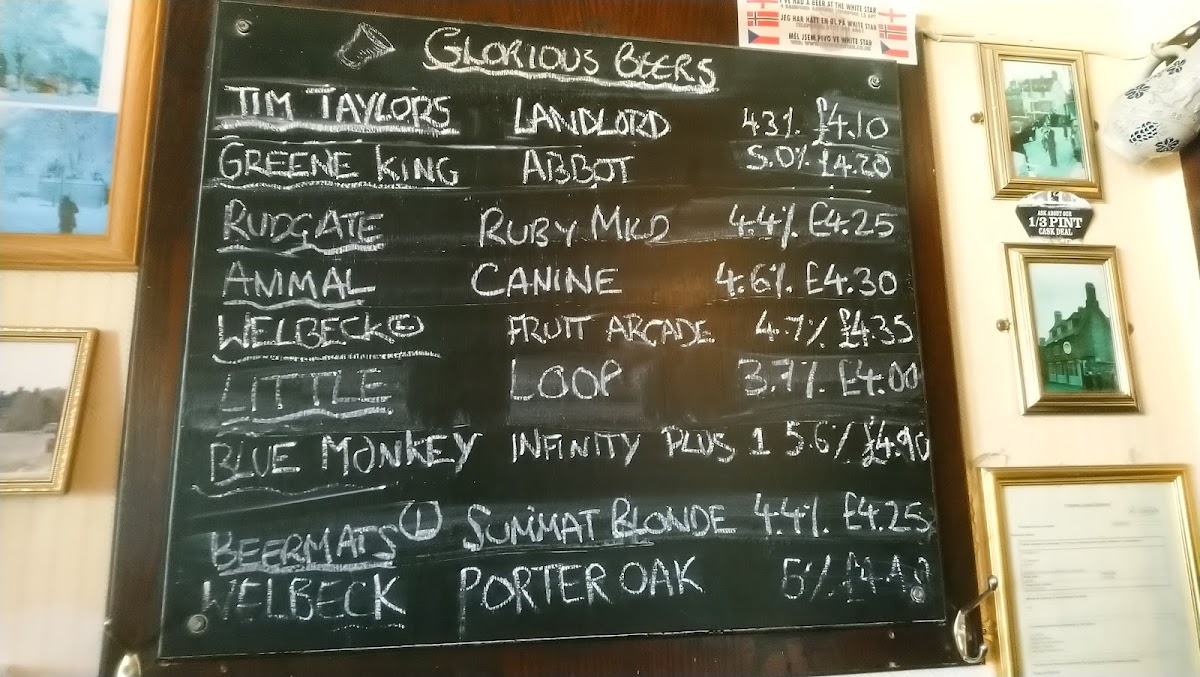 I'VE HAD A BEER AT THE WHITE STAR
JEG HAR HATT EN ØL PÅ WHITE STAR
MĚL JSEM PIVO VE WHITE STAR
GLORIOUS BEERS
TIM TAYLORS LANDLORD 4.3% £4.10
GREENE KING ABBOT 5.0% £4.20
RUDGATE RUBY MILD 4.4% £4.25
ANIMAL CANINE 4.6% £4.30
WELBECK E FRUIT ARCADE 4.7% £4.35
LITTLE LOOP 3.7% £4.00
BLUE MONKEY INFINITY PLUS 1 5.6% £4.90
BEERMATS L SUMMAT BLONDE 4.4% £4.25
WELBECK PORTER OAK 5%
ASK ABOUT OUR
1/3 PINT
CASK DEAL